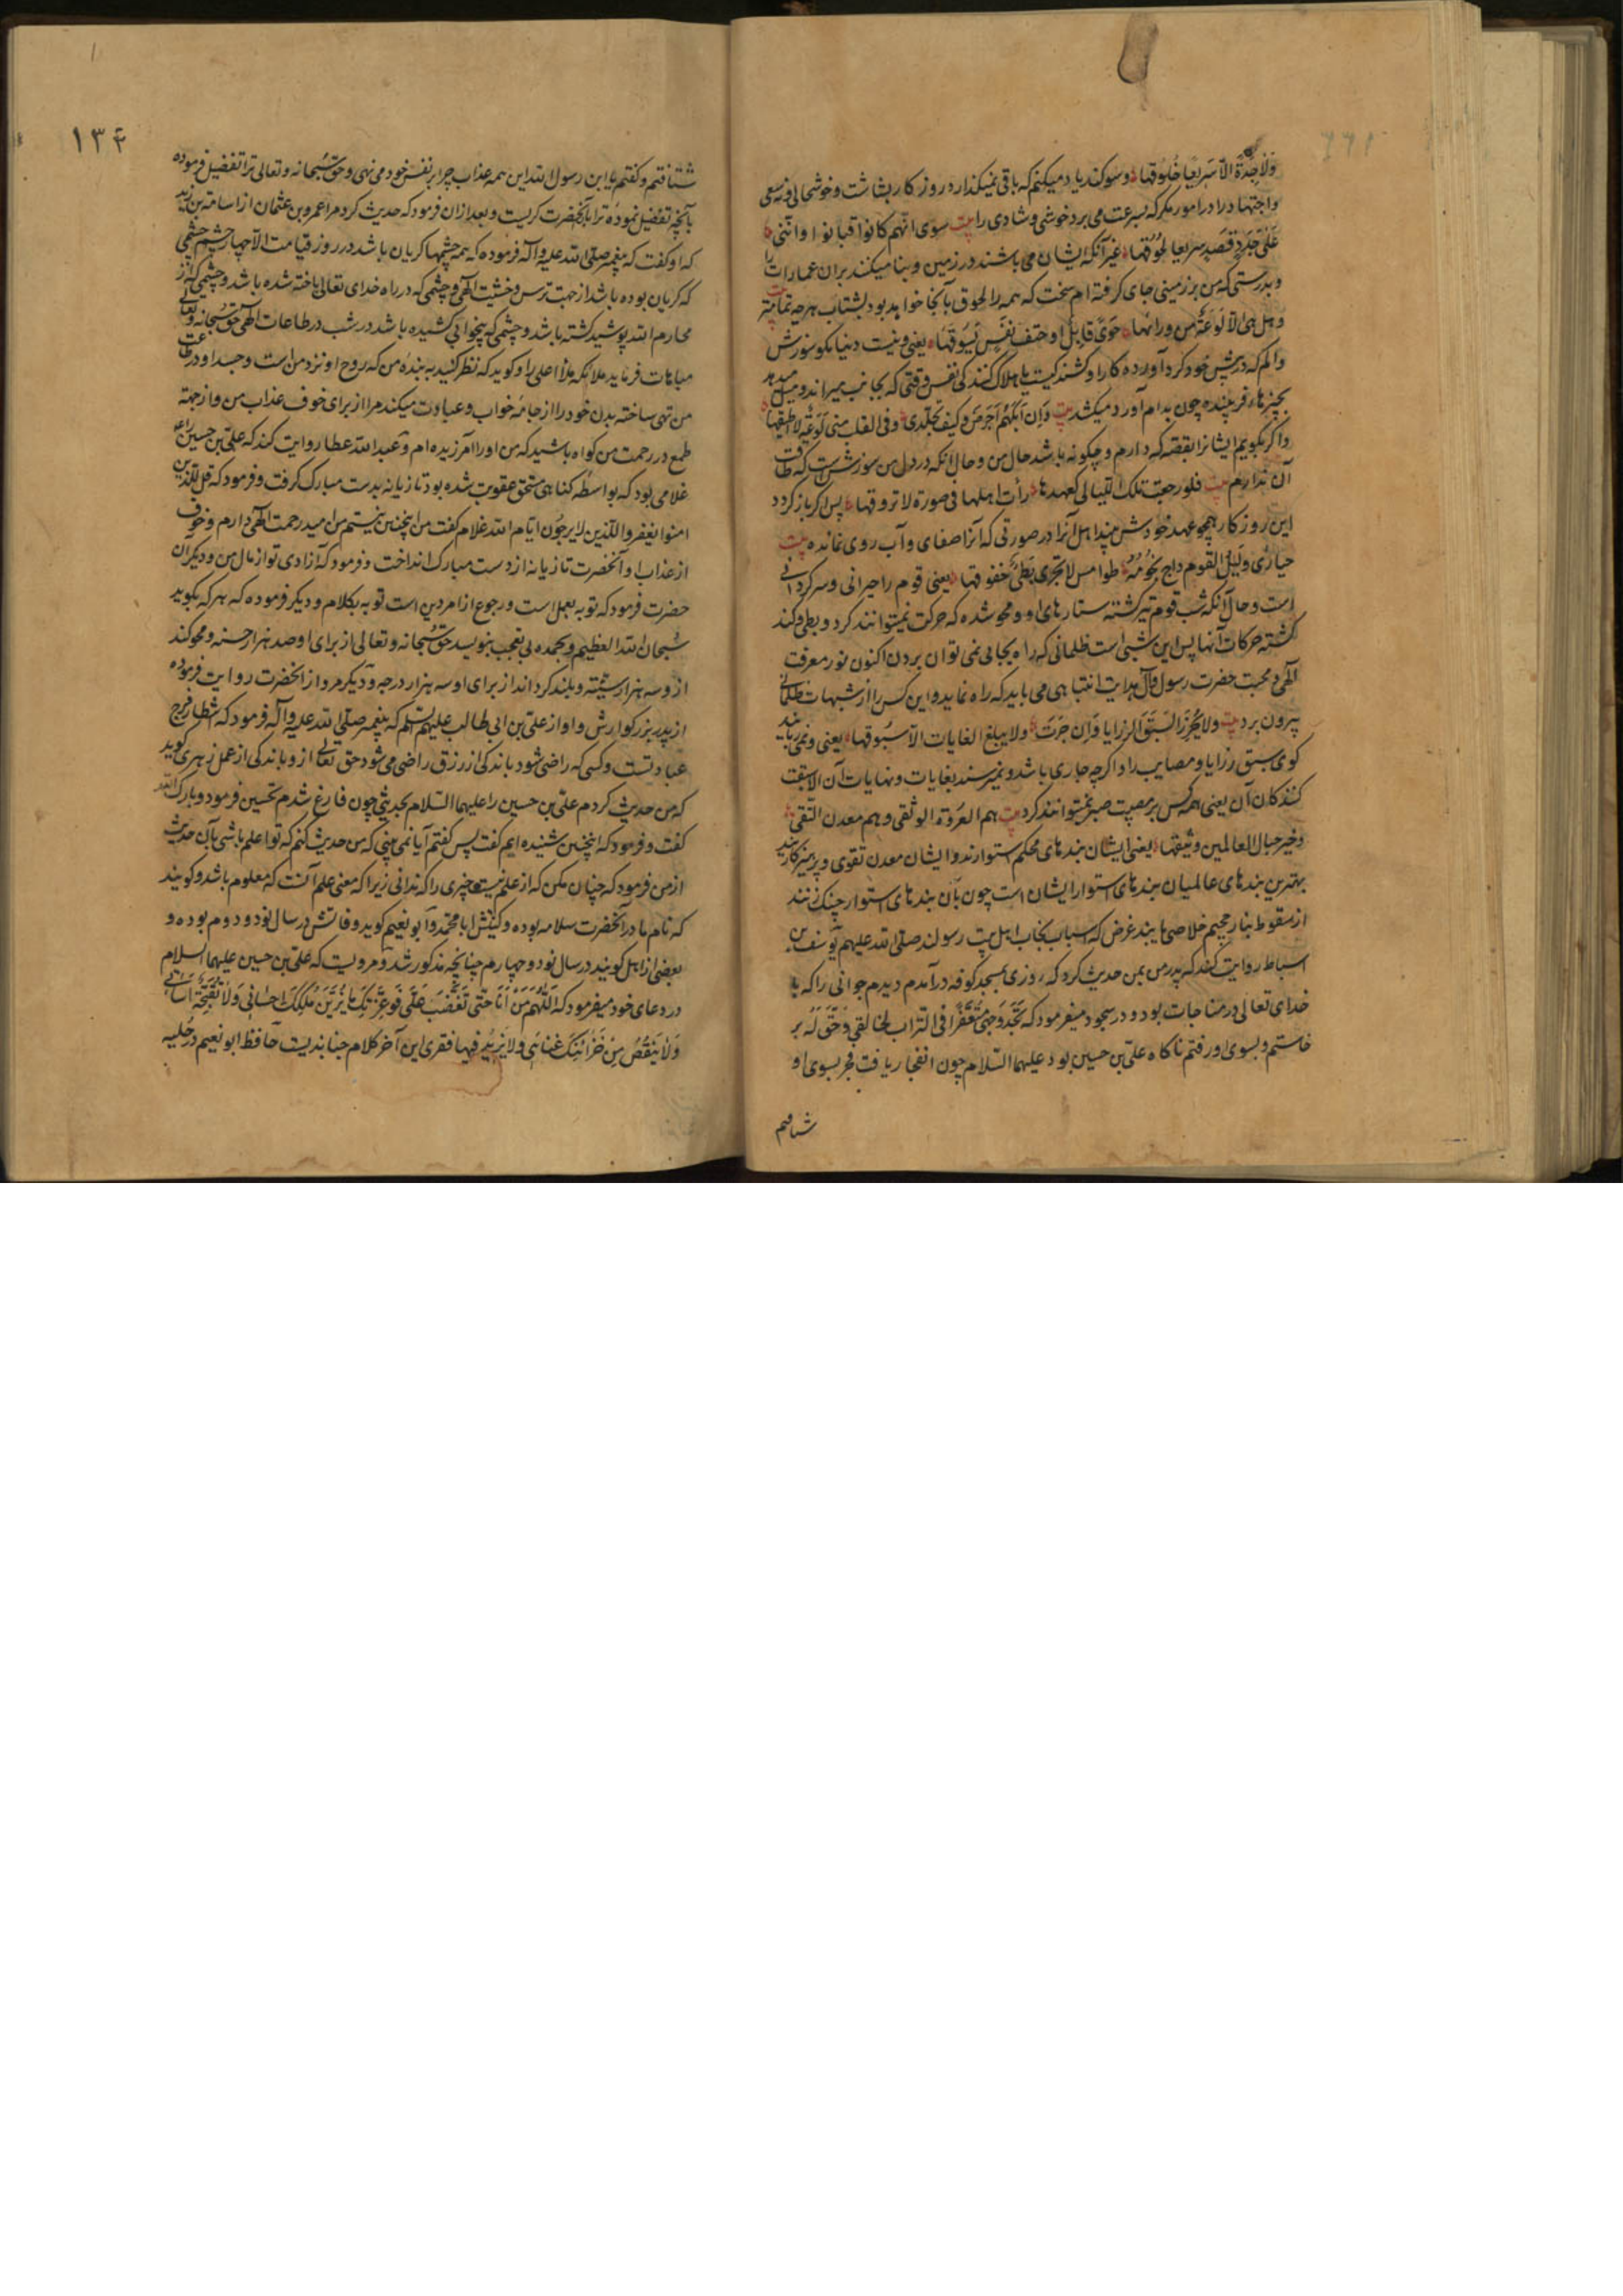 ولا جدة الا سریعا خلوقها و سوکند یاد میکنم که باقی نمیکذارد روزکار بشاشت و خوشحالی و نه سعی
واجتهاد را در امور مکر که بسرعت می برد خوشی و شادی را بیت سوی انهم کانوا فبانوا واننی
علی جدد قصد سریعا لحوقها غیر آنکه ایشان می باشند در زمین و بنا میکنند بران عمارات را
و بدرستی که من بر زمینی جای کرفته ام سخت که همه را لحوق بآنجا خواهد بود بشتاب هر چه تمامتر بیت
و هل هی الا لوعة من ورائها جوی قاتل او حتف نفس یسوقها یعنی و نیست دنیا مکر سوزش
و الم که در پس خود کرد آورده کار او کشند کیست یا هلاک کنند کی نفس وقتی که بجانب میراند و میل میدهد
بچیزهاء فریبنده چون بدام آورد میکشد بیت وان ابکهم اجرض و کیف تجلدی و فی القلب منی لوعة لا اطیقها
و اکر بکویم ایشانرا بقصه که دارم و چکونه باشد حال من و حال آنکه در دل من سوزشی است که طاقت
آن ندارم بیت فلو رجعت تلک اللیالی کعهدها رأت اهلها فی صورة لا تروقها پس اکر باز کردد
این روزکار همچو عهد خودش بیند اهل آنرا در صورتی که آنرا صفای و آب روی نمانده بیت
حیاری ولیل القوم داج نجومه طوامس لا تجری بطیء خفوقها یعنی قوم را حیرانی و سرکردانی
است و حال آنکه شب قوم تیره کشته ستارهای او و محو شده که حرکت نمیتوانند کرد و بطی و کند
کشته حرکات آنها پس این شبی است ظلمانی که راه بجایی نمی توان بردن اکنون نور معرفت
الهی و محبت حضرت رسول و آل هدایت انتباهی می باید که راه نماید و این کس را از شبهات ظلمانی
بیرون برد بیت ولا یحرز السبق الرزایا وان جرت ولا یبلغ الغایات الا سبوقها یعنی و نمی ربایند
کوی سبق رزایا و مصایب را و اکرچه جاری باشد و نمیرسند بغایات و نهایات آن الا سبقت
کنندکان آن یعنی همه کس بر مصیبت صبر نمیتوانند کرد بیت هم العروة الوثقی و هم معدن التقی
و خیر حبال العالمین وثیقها یعنی ایشان بندهای محکم استوارند و ایشان معدن تقوی و پرهیزکاریند
بهترین بندهای عالمیان بندهای استوار ایشان است چون بآن بندهای استوار چنک زنند
از سقوط بنار جحیم خلاصی یابند غرض که اسباب نجات اهل بیت رسولند صلی الله علیهم یوسف بن
اسباط روایت کند که پدر من بمن حدیث کرد که روزی بمسجد کوفه درآمدم دیدم جوانی را که با
خدای تعالی در مناجات بود و در سجود میفرمود که سجد وجهی متعفرا فی التراب لخالقی و حق له بر
خاستم و بسوی او رفتم ناکاه علی بن حسین بود علیهما السلام چون انفجار یافت فجر بسوی او
شتافتم
۱۳۴
شتافتم و کفتم یا ابن رسول الله این همه عذاب چرا بر نفس خود می نهی و حق سبحانه و تعالی ترا تفضیل فرموده
بآنچه تفضیل نموده ترا بآن آنحضرت کریست و بعد ازان فرمود که حدیث کرد مرا عمرو بن عثمان از اسامة بن زید
که او کفت که پیغمبر صلی الله علیه و آله فرموده که همه چشمها کریان باشد در روز قیامت الا چهار چشم چشمی
که کریان بوده باشد از جهت ترس و خشیت الهی و چشمی که در راه خدای تعالی باخته شده باشد و چشمی که از
محارم الله پوشید کشته باشد و چشمی که بیخوابی کشیده باشد در شب در طاعات الهی حق سبحانه و تعالی
مباهات فرماید ملائکه ملأ اعلی را و کوید که نظر کنید به بنده من که روح او نزد من است و جسد او در طاعت
من تهی ساخته بدن خود را از جامه خواب و عبادت میکند مرا از برای خوف عذاب من و از جهة
طمع در رحمت من کواه باشید که من او را آمرزیده ام و عبد الله عطا روایت کند که علی بن حسین را
غلامی بود که بواسطه کناهی مستحق عقوبت شده بود تازیانه بدست مبارک کرفت و فرمود که قل للذین
امنوا یغفروا للذین لا یرجون ایام الله غلام کفت من اینچنین نیستم من امید رحمت الهی دارم و خوف
از عذاب او آنحضرت تازیانه از دست مبارک انداخت و فرمود که آزادی تو از مال من و دیکر آن
حضرت فرمود که توبه بعمل است و رجوع از امر دین است توبه بکلام و دیکر فرموده که هر که بکوید
سبحان الله العظیم و بحمده بی تعجب بنویسد حق سبحانه و تعالی از برای او صد هزار حسنه و محو کند
ازو سه هزار سیئه و بلند کرداند از برای او سه هزار درجه و دیکر مرو از آنحضرت روایت فرموده
از پدر بزرکوارش و او از علی بن ابی طالب علیهم السلم که پیغمبر صلی الله علیه و آله فرمود که انتظار فرج
عبادتست و کسی که راضی شود باندکی از رزق راضی می شود حق تعالی ازو باندکی از عمل زهری کوید
که من حدیث کردم علی بن حسین را علیهما السلام بحدیثی چون فارغ شدم تحسین فرمود و بارک الله
کفت و فرمود که اینچنین شنیده ایم کفت پس کفتم آیا نمی بینی که من حدیث کنم که تو اعلم باشی بآن حدیث
از من فرمود که چنان مکن که از علم نیست چیزی را که ندانی زیرا که معنی علم آنست که معلوم باشد و کویند
که نام مادر آنحضرت سلامه بوده و کنیتش ابا محمد و ابو نعیم کوید وفاتش در سال نود و دوم بوده و
بعضی از اهل کویند در سال نود و چهارم چنانچه مذکور شد و مرویست که علی بن حسین علیهما السلام
در دعای خود میفرمود که اللهم من انا حتی تغضب علی فوعزتک ما یزین ملکک احسانی ولا تقبحه اساءتی
ولا ینقص من خزائنک غنائی ولا یزید فیها فقری این آخر کلام جنابذیست حافظ ابو نعیم در حلیه